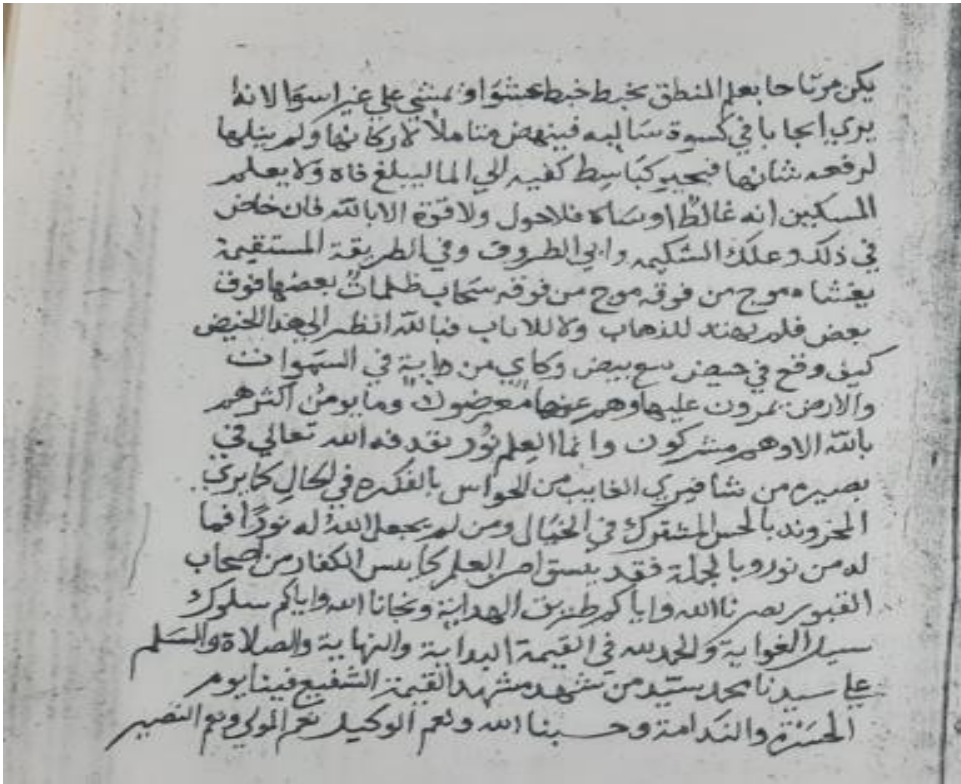 يكن مرتاحا بعلم المنطق يخبط خبط عشوا او يمشي علي غير اسوا لانه
يري ايجابا في كسوة سالبه فينهض متاملا لاركانها ولم ينلها
لرفعه شانها فيجيه كباسط كفيه الي الما ليبلغ فاه ولا يعلم
المسكين انه غالط او ساه فلا حول ولا قوة الا بالله فان خاض
في ذلك وعلك الشكيمه وابي الطروق وفي الطريقة المستقيمة
يغشاه موج من فوقه موج من فوقه سحاب ظلمات بعضها فوق
بعض فلم يهتد للذهاب ولا للاياب فبالله انظر الي هذا الحيض
كيف وقع في حيض بيض وكاي من داية في السموات
والارض يمرون عليها وهم عنها معرضون وما يومن اكثرهم
بالله الا وهم مشركون وانما العلم نور يقدفه الله تعالي في
بصيره من شا فيري الغايب من الحواس بالفكره في الحال كما يري
المخزون بالحس المشترك في الخيال ومن لم يجعل الله له نورا فما
له من نور وبالجملة فقد يستو امر العلم كما يىس الكفار من اصحاب
القبور بصرنا الله واياكم طريق الهداية ونجانا الله واياكم سلوك
سبيل الغواية والحمد لله في القيمة البداية والنهاية والصلاة والسلم
علي سيدنا محمد سيد من شهد مشهد القيمة الشفيع فينا يوم
الحسرة والندامة وحسبنا الله ونعم الوكيل نعم المولي ونعم النصير